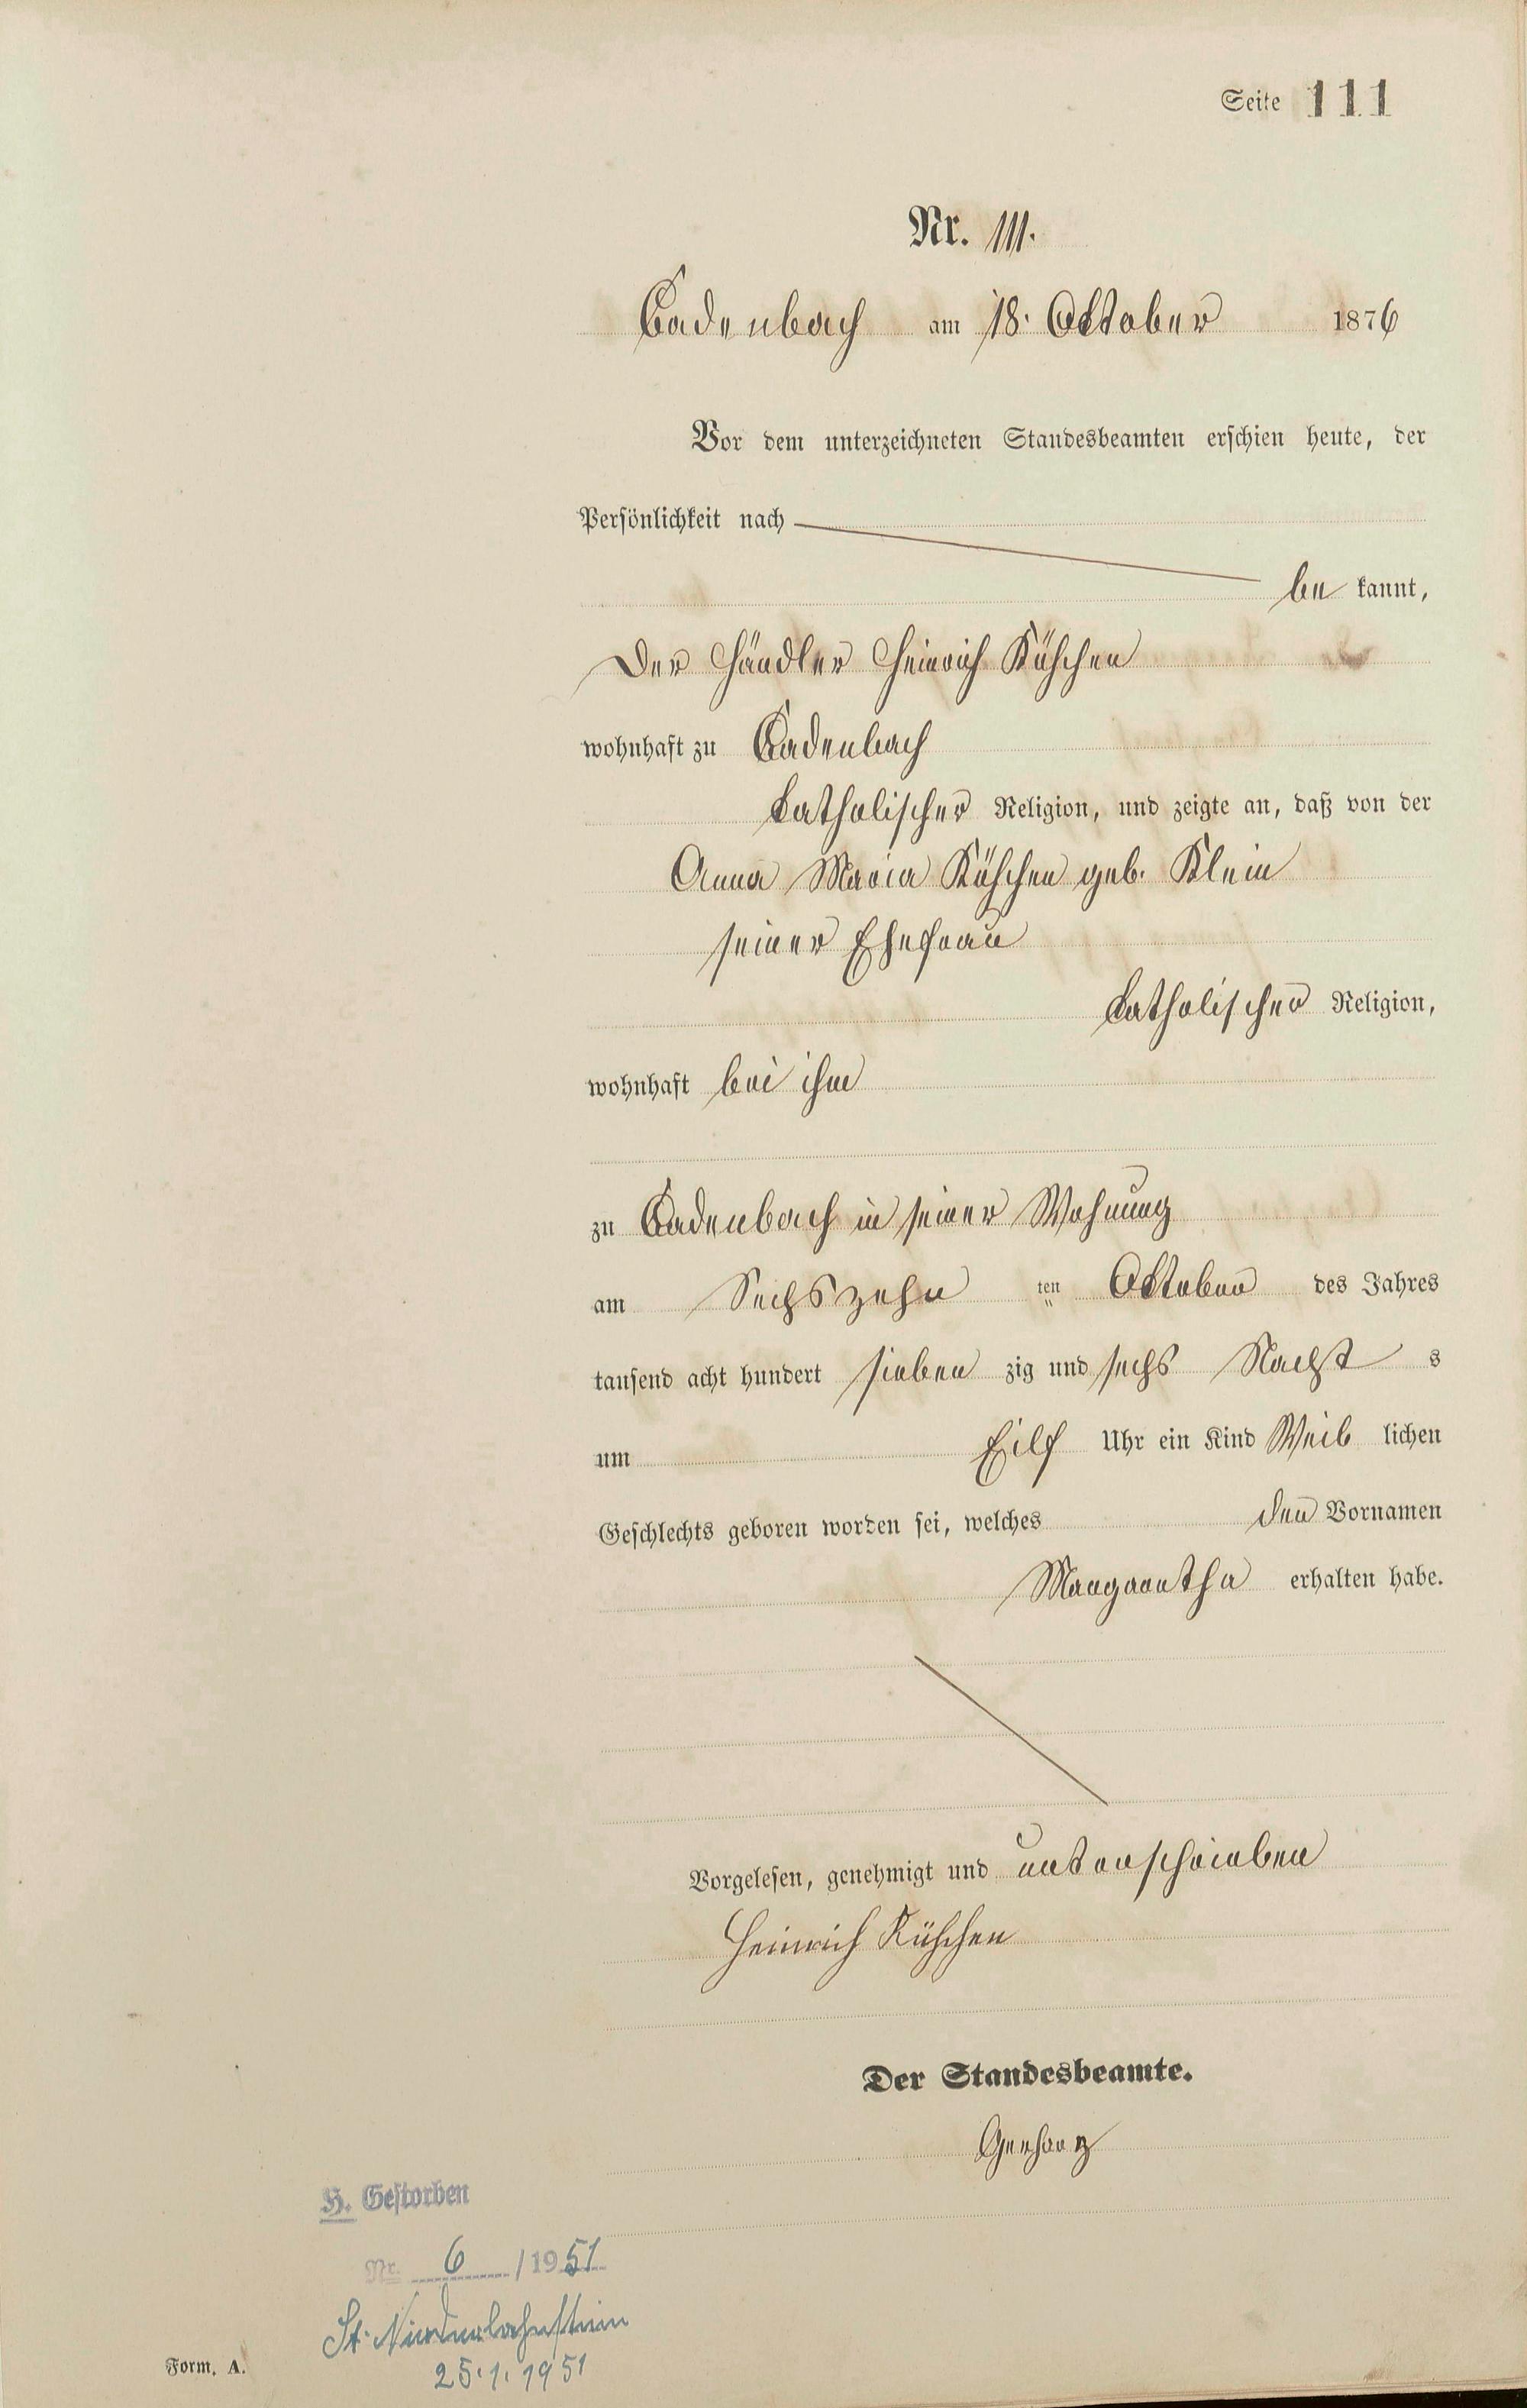 Seite 111
Nr. 111.
Cadenbach am 18. Oktober 1876
Vor dem unterzeichneten Standesbeamten erschien heute, der
Persönlichkeit nach
be kannt,
Der Händler Heinrich Kühchen
wohnhaft zu Cadenbach
katholischer Religion, und zeigte an, daß von der
Anna Maria Kühchen geb. Klein
seiner Ehefrau
katholischer Religion,
wohnhaft bei ihm
zu Cadenbach in seiner Wohnung
am Sechszehn ten Oktober des Jahres
tausend acht hundert sieben zig und sechs Nacht s
um Eilf Uhr ein Kind Weib lichen
Geschlechts geboren worden sei, welches den Vornamen
Margaretha erhalten habe.
Vorgelesen, genehmigt und unterschrieben
Heinrich Kühchen
Der Standesbeamte.
Gerharz
H. Gestorben
Nr. 6 / 1951
St. Niederlahnstein
25.1.1951
Form. A.